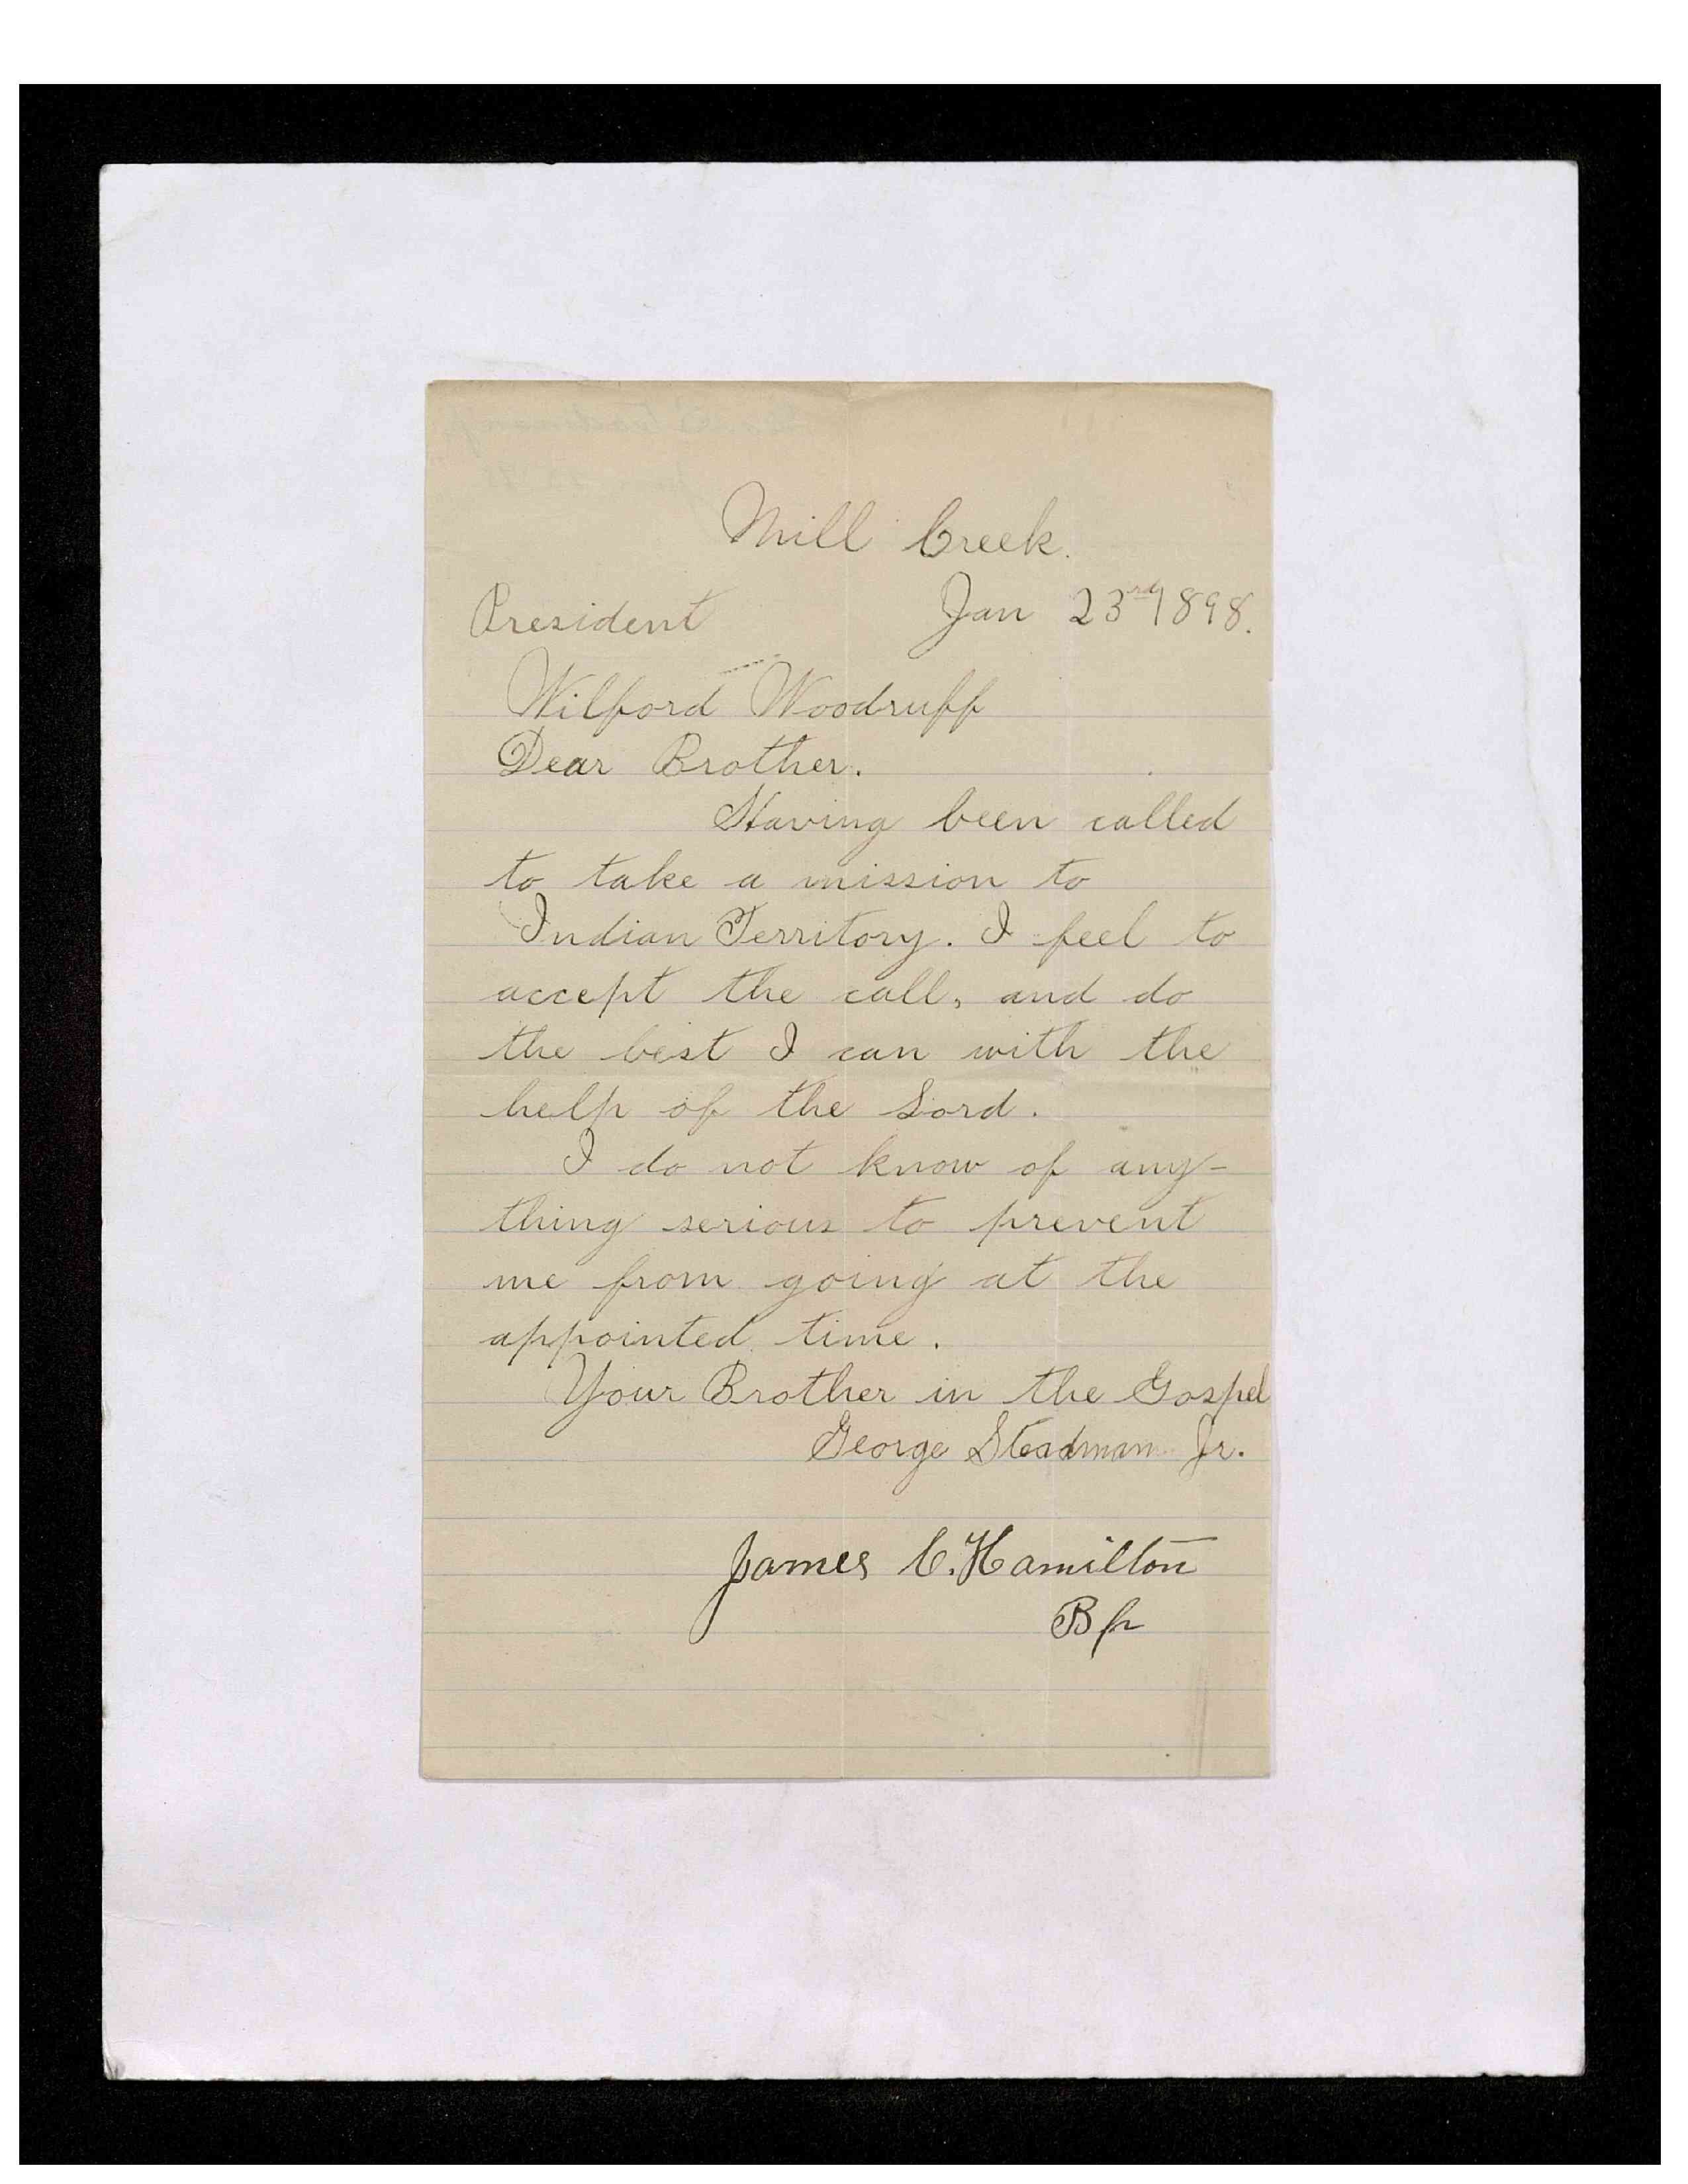 Mill Creek.
Jan 23rd 1898.
President
Wilford Woodruff
Dear Brother.
Having been called
to take a mission to
Indian Territory. I feel to
accept the call, and do
the best I can with the
help of the Lord.
I do not know of any-
thing serious to prevent
me from going at the
appointed time.
Your Brother in the Gospel
George Steadman Jr.
James C. Hamilton
Bp